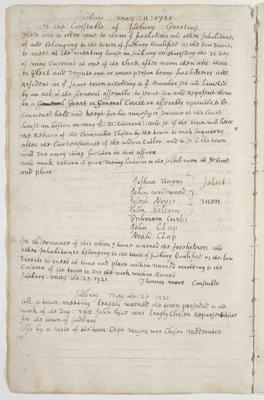 Sudbury may 20: 1721
To the Constable of Sudbury Greeting
These are to order you to warn ye freeholders and other Inhabitants
of and belonging to the town of Sudbury Qualified as the law directs
to meet at the meeting house in Sudbury on the 26 day
of may Currant at one of the Clock after noon then and there
to Elect and Depute one or more person being freeholders and
Resident in sd town according to ye number set and limited
by an act of the General assembly to serve for and represent them
in a Great or General Court or assembly appointed to be
Convened held and kept for his majestys service at the Court
house in boston on may and to see if the town will hear
the Return of the Committee Chosen by the town to make inquirey
after the Circumstances of the and to se if the town
will Doe any thing further in that affaire
and make Return of your Doeing hearin to the select men at time
and place
Joshua Haynes
John woodward
Joseph Noyes
John Balcom
Ephraim Curtis
John Clap
Noah Clap
Select
men
In obediance of this order I have warned the freeholders and
other Inhabitants belonging to the town of Sudbury Qualified as the law
Directs to meet at time and place within named according to the
Custom of the town to Doe the work within Named
Sudbury may 26 1721
Thomas moore Constable
Sudbury may 26 1721
At a town meeting Leagaly warned the town proseded to the
work of the Day: viz John Rice was Leagly Chosen Representative
for the town of Sudbury
also by a vote of the town Capt Haynes was Chosen moderater